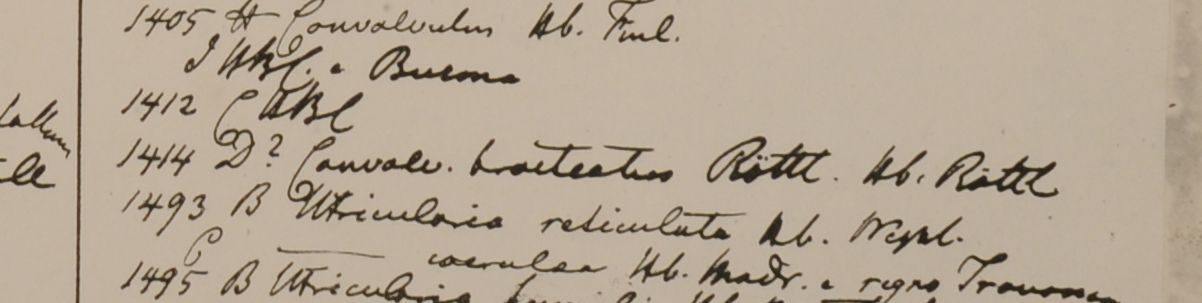 1405 H Convolvulus Hb. Finl.
I HBC. e Burma
1412 C HBC
1414 D? Convolv. bracteatus Röttl. Hb. Röttl
1493 B Utricularia reticulata Hb. Nepal.
C ——— coerulea Hb. Madr. e regno Travancor
1495 B Utricularia Hb.